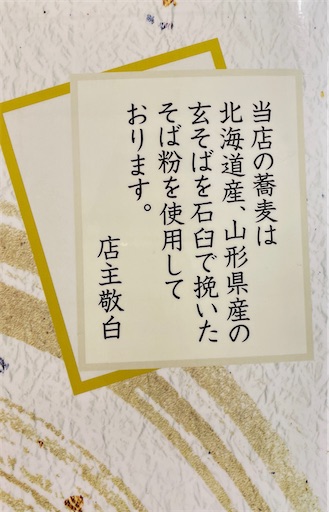 当店の蕎麦は
北海道産、山形県産の
玄そばを石臼で挽いた
そば粉を使用して
おります。
店主敬白